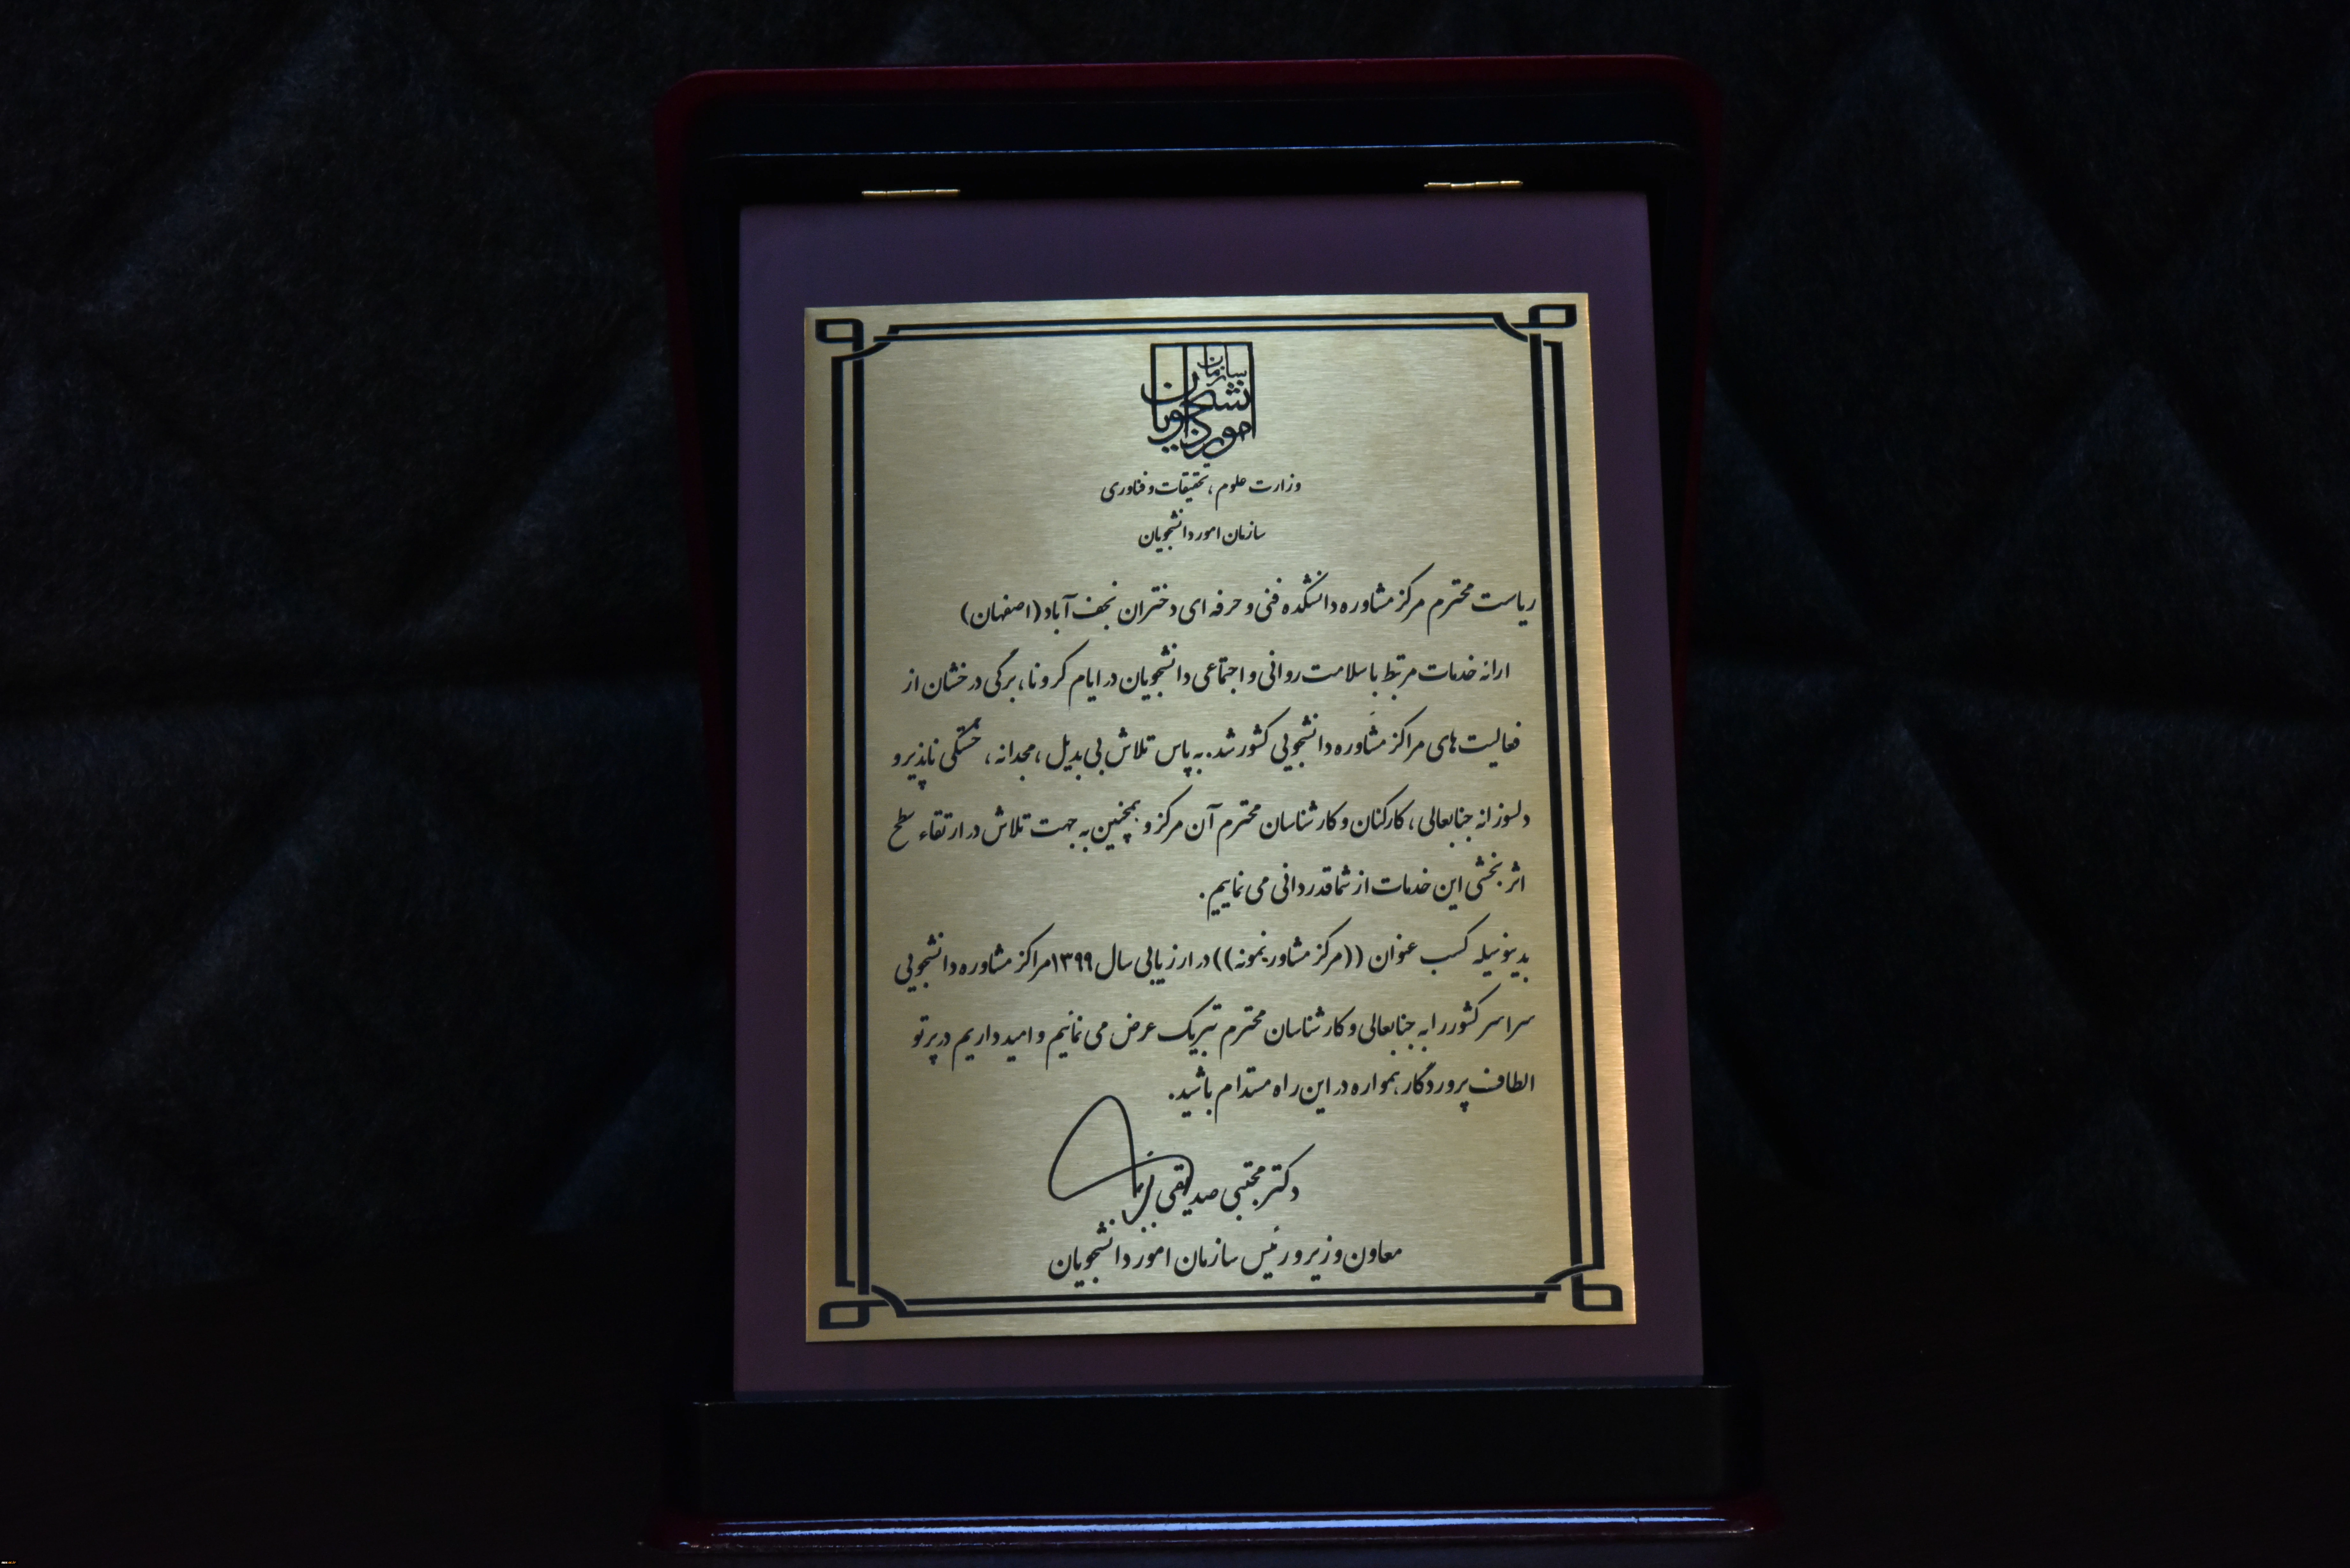 سازمان
امور دانشجویان
وزارت علوم، تحقیقات و فناوری
سازمان امور دانشجویان
ریاست محترم مرکز مشاوره دانشکده فنی و حرفه ای دختران نجف آباد (اصفهان)
ارائه خدمات مرتبط با سلامت روانی و اجتماعی دانشجویان در ایام کرونا، برگی درخشان از
فعالیت های مراکز مشاوره دانشجویی کشور شد. به پاس تلاش بی بدیل، مجدانه، خستگی ناپذیر و
دلسوزانه جنابعالی، کارکنان و کارشناسان محترم آن مرکز و همچنین به جهت تلاش در ارتقاء سطح
اثر بخشی این خدمات از شما قدردانی می نماییم.
بدینوسیله کسب عنوان ((مرکز مشاور نمونه)) در ارزیابی سال ۱۳۹۹ مراکز مشاوره دانشجویی
سراسر کشور را به جنابعالی و کارشناسان محترم تبریک عرض می نمائیم و امید داریم در پرتو
الطاف پروردگار همواره در این راه مستدام باشید.
دکتر مجتبی صدیقی
معاون وزیر و رئیس سازمان امور دانشجویان